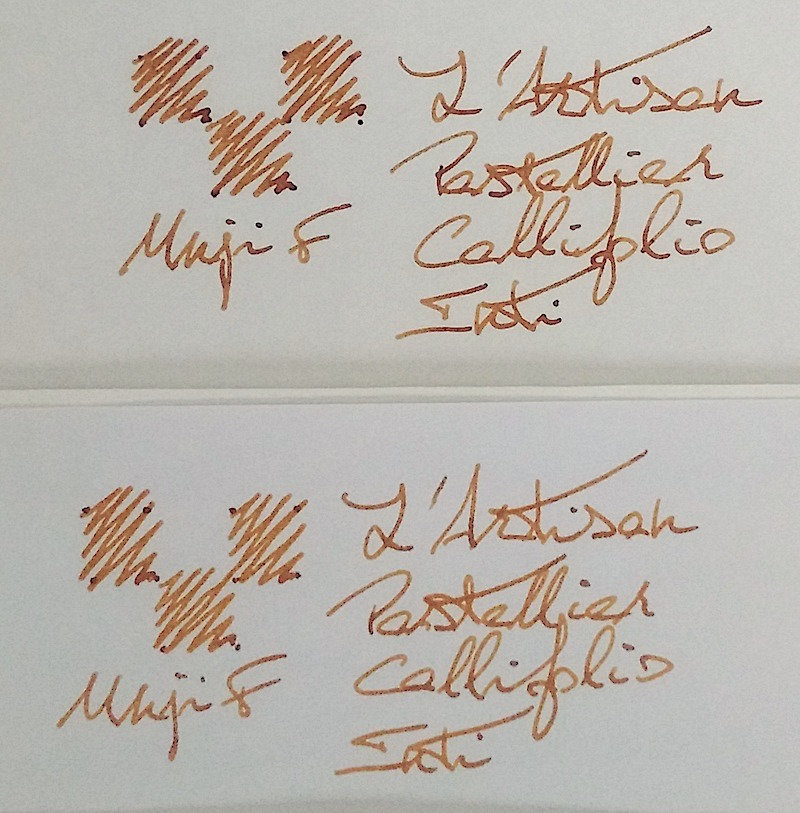 L'Artisan
Pastellier
Callifolio
Inti
Muji F
L'Artisan
Pastellier
Callifolio
Inti
Muji F